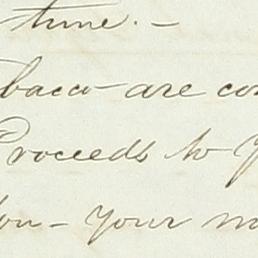 time. -
bacco - are co
Proceeds to y
on - your m